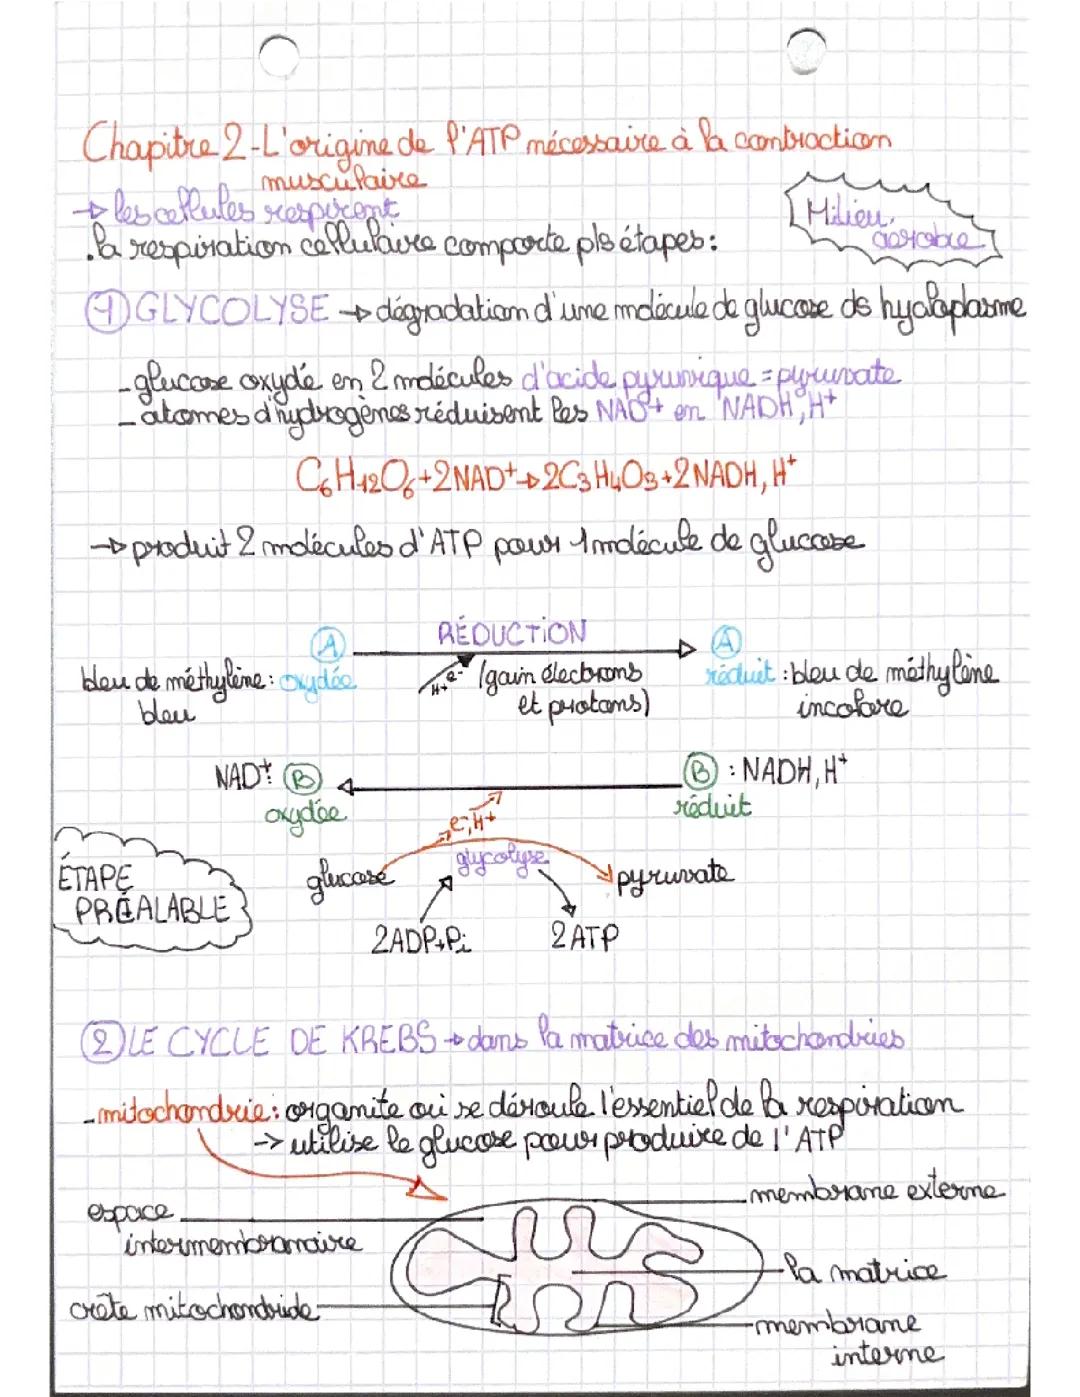 Chapitre 2 - L'origine de l'ATP nécessaire à la contraction
musculaire
→ les cellules respirent
Milieu aérobie
. la respiration cellulaire comporte pls étapes :
① GLYCOLYSE → dégradation d'une molécule de glucose ds hyaloplasme
- glucose oxydé en 2 molécules d'acide pyruvique = pyruvate
- atomes d'hydrogènes réduisent les NAD+ en NADH, H+
C6H12O6 + 2NAD+ → 2C3H4O3 + 2NADH, H+
→ produit 2 molécules d'ATP pour 1 molécule de glucose
RÉDUCTION
bleu de méthylène : oxydée
bleu
A
H+ e-
(gain électrons
et protons)
A
réduit : bleu de méthylène
incolore
NAD+ : B
oxydée
B : NADH, H+
réduit
e-, H+
ÉTAPE
PRÉALABLE
glucose
glycolyse
pyruvate
2ADP+Pi
2 ATP
② LE CYCLE DE KREBS → dans la matrice des mitochondries
- mitochondrie : organite où se déroule l'essentiel de la respiration
→ utilise le glucose pour produire de l'ATP
membrane externe
espace
intermembranaire
la matrice
crête mitochondride
membrane
interne